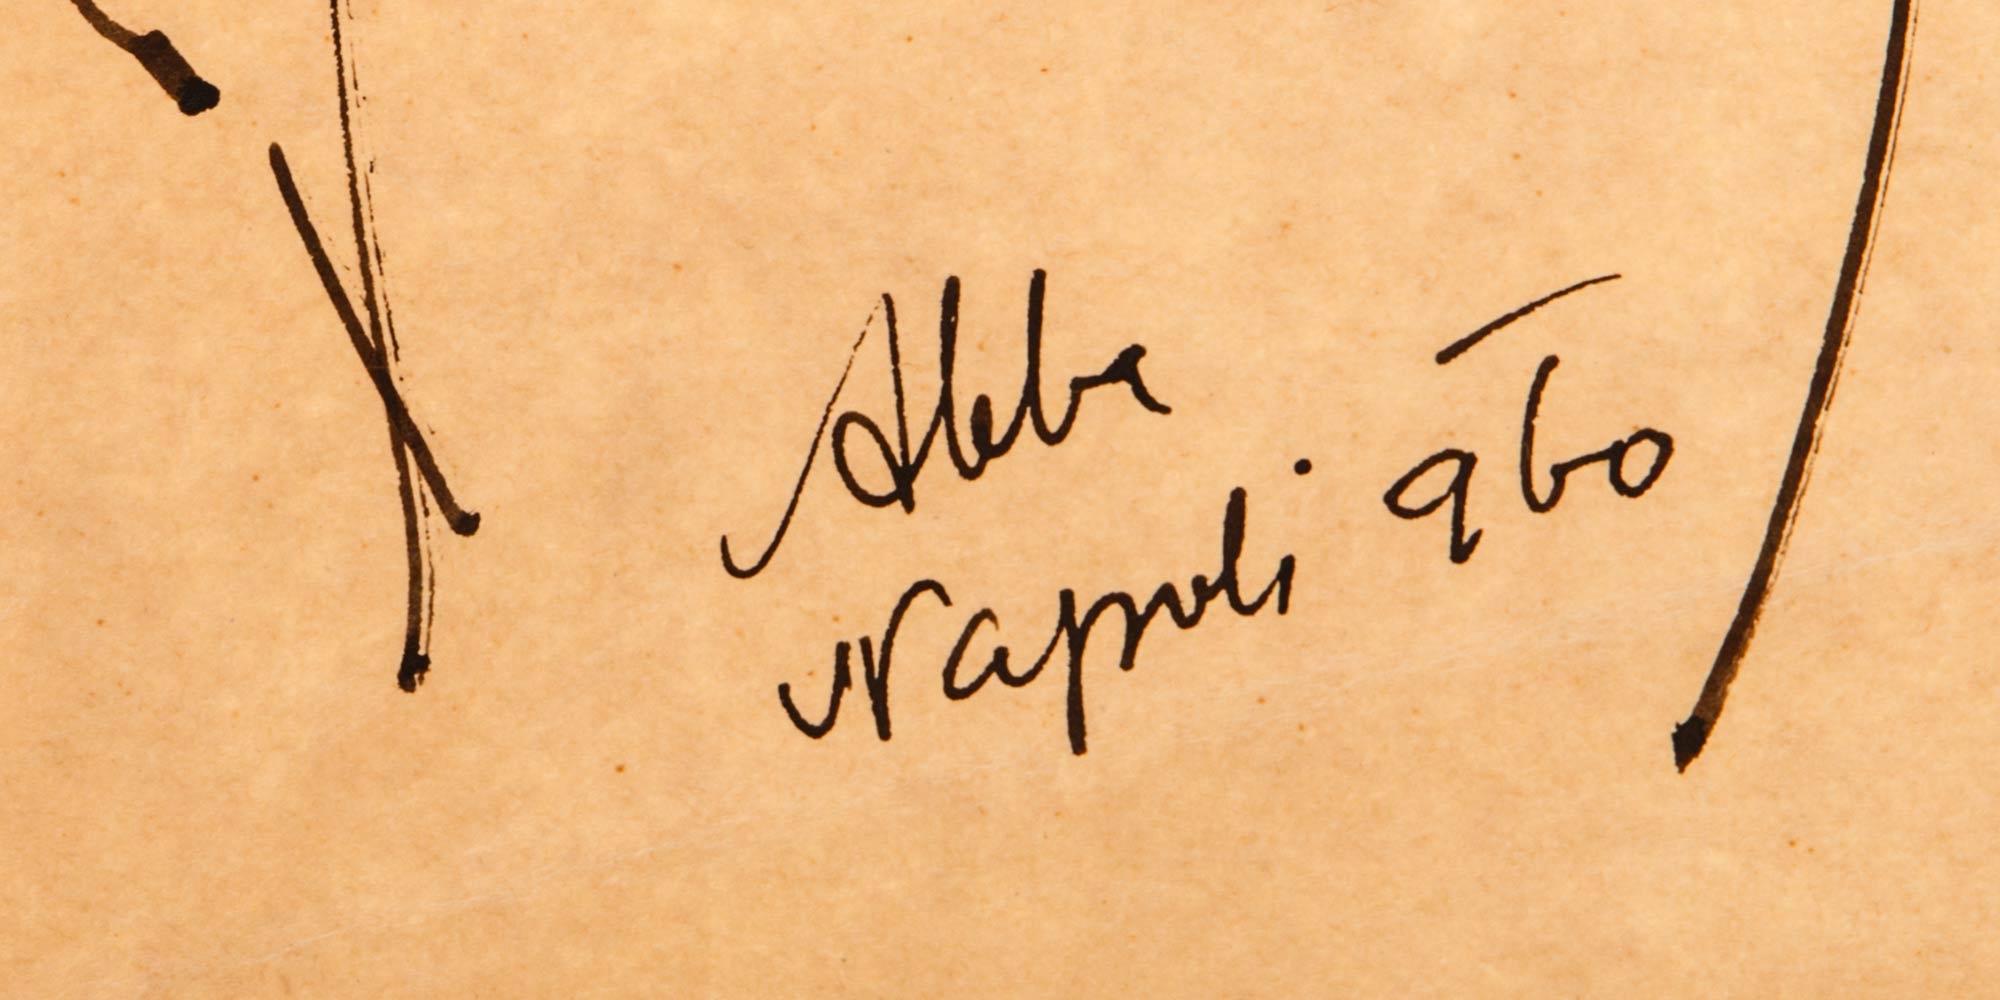 Abba
Napoli 960